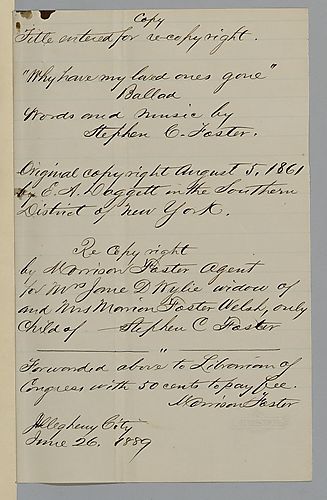 Copy
Title entered for re-copyright.
"Why have my loved ones gone"
Ballad
Words and music by
Stephen C. Foster.
Original copyright August 5, 1861
by E. A. Daggett in the Southern
District of New York.
Re Copyright
by Morrison Foster Agent
for Mrs Jane D Wylie widow of
and Mrs Marion Foster Welsh, only
Child of — Stephen C Foster
Forwarded above to Librarian of
Congress with 50 cents to pay fee.
Morrison Foster
Allegheny City
June 26. 1889